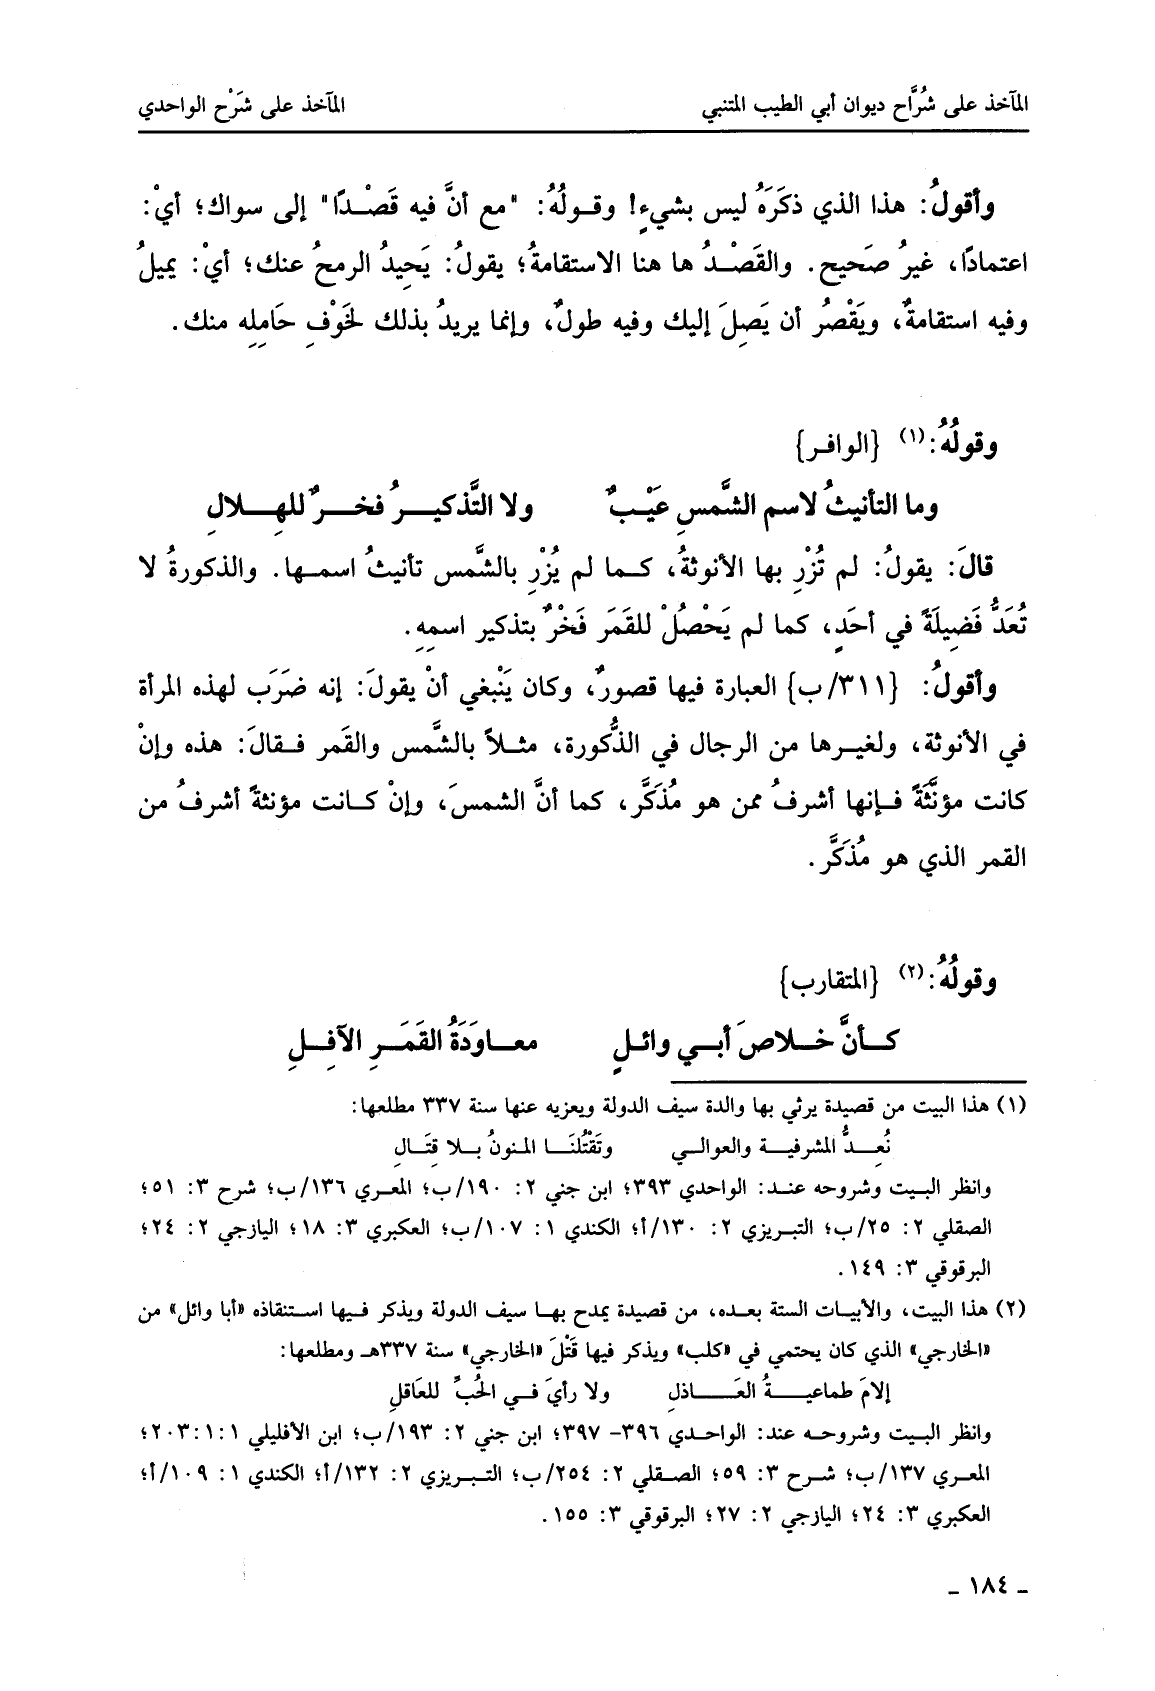 المآخذ على شُرَّاح ديوان أبي الطيب المتنبي المآخذ على شَرْح الواحدي
وأقولُ: هذا الذي ذكَرَهُ ليس بشيءٍ! وقولُهُ: "مع أنَّ فيه قَصْدًا" إلى سواك؛ أيْ:
اعتمادًا، غيرُ صَحيح. والقَصْدُ ها هنا الاستقامةُ؛ يقولُ: يَحِيدُ الرمحُ عنك؛ أيْ: يميلُ
وفيه استقامةٌ، ويَقْصُر أن يَصِلَ إليك وفيه طولٌ، وإنما يريدُ بذلك لخَوْفِ حَامِلِه منك.
وقولُهُ:(١) {الوافر}
وما التأنيثُ لاسم الشَّمسِ عَيْبٌ ولا التَّذكيرُ فخرٌ للهِلالِ
قالَ: يقولُ: لم تُزْرِ بها الأنوثةُ، كما لم يُزْرِ بالشَّمس تأنيثُ اسمها. والذكورةُ لا
تُعَدُّ فَضِيلَةً في أحَدٍ، كما لم يَحْصُلْ للقَمَر فَخْرٌ بتذكير اسمِهِ.
وأقولُ: {٣١١/ب} العبارة فيها قصورٌ، وكان يَنْبغي أنْ يقولَ: إنه ضَرَب لهذه المرأة
في الأنوثة، ولغيرها من الرجال في الذُّكورة، مثلاً بالشَّمس والقَمر فقالَ: هذه وإنْ
كانت مؤنَّثَةً فإنها أشرفُ ممن هو مُذَكَّر، كما أنَّ الشمسَ، وإنْ كانت مؤنثةً أشرفُ من
القمر الذي هو مُذَكَّر.
وقولُهُ:(٢) {المتقارب}
كأنَّ خلاصَ أبي وائلٍ معاوَدَةُ القَمَرِ الآفِلِ
(١) هذا البيت من قصيدة يرثي بها والدة سيف الدولة ويعزيه عنها سنة ٣٣٧ مطلعها:
نُعِدُّ المشرفية والعوالي وتَقْتُلنَا المنونُ بلا قِتَالِ
وانظر البيت وشروحه عند: الواحدي ٣٩٣؛ ابن جني ٢: ١٩٠/ب؛ المعري ١٣٦/ب؛ شرح ٣: ٥١؛
الصقلي ٢: ٢٥/ب؛ التبريزي ٢: ١٣٠/أ؛ الكندي ١: ١٠٧/ب؛ العكبري ٣: ١٨؛ اليازجي ٢: ٢٤؛
البرقوقي ٣: ١٤٩.
(٢) هذا البيت، والأبيات الستة بعده، من قصيدة يمدح بها سيف الدولة ويذكر فيها استنقاذه «أبا وائل» من
«الخارجي» الذي كان يحتمي في «كلب» ويذكر فيها قَتْلَ «الخارجي» سنة ٣٣٧هـ ومطلعها:
إلامَ طماعيةُ العَاذلِ ولا رأيَ في الحُبِّ للعَاقلِ
وانظر البيت وشروحه عند: الواحدي ٣٩٦- ٣٩٧؛ ابن جني ٢: ١٩٣/ب؛ ابن الأفليلي ١:١:٢٠٣؛
المعري ١٣٧/ب؛ شرح ٣: ٥٩؛ الصقلي ٢: ٢٥٤/ب؛ التبريزي ٢: ١٣٢/أ؛ الكندي ١: ١٠٩/أ؛
العكبري ٣: ٢٤؛ اليازجي ٢: ٢٧؛ البرقوقي ٣: ١٥٥.
- ١٨٤ -